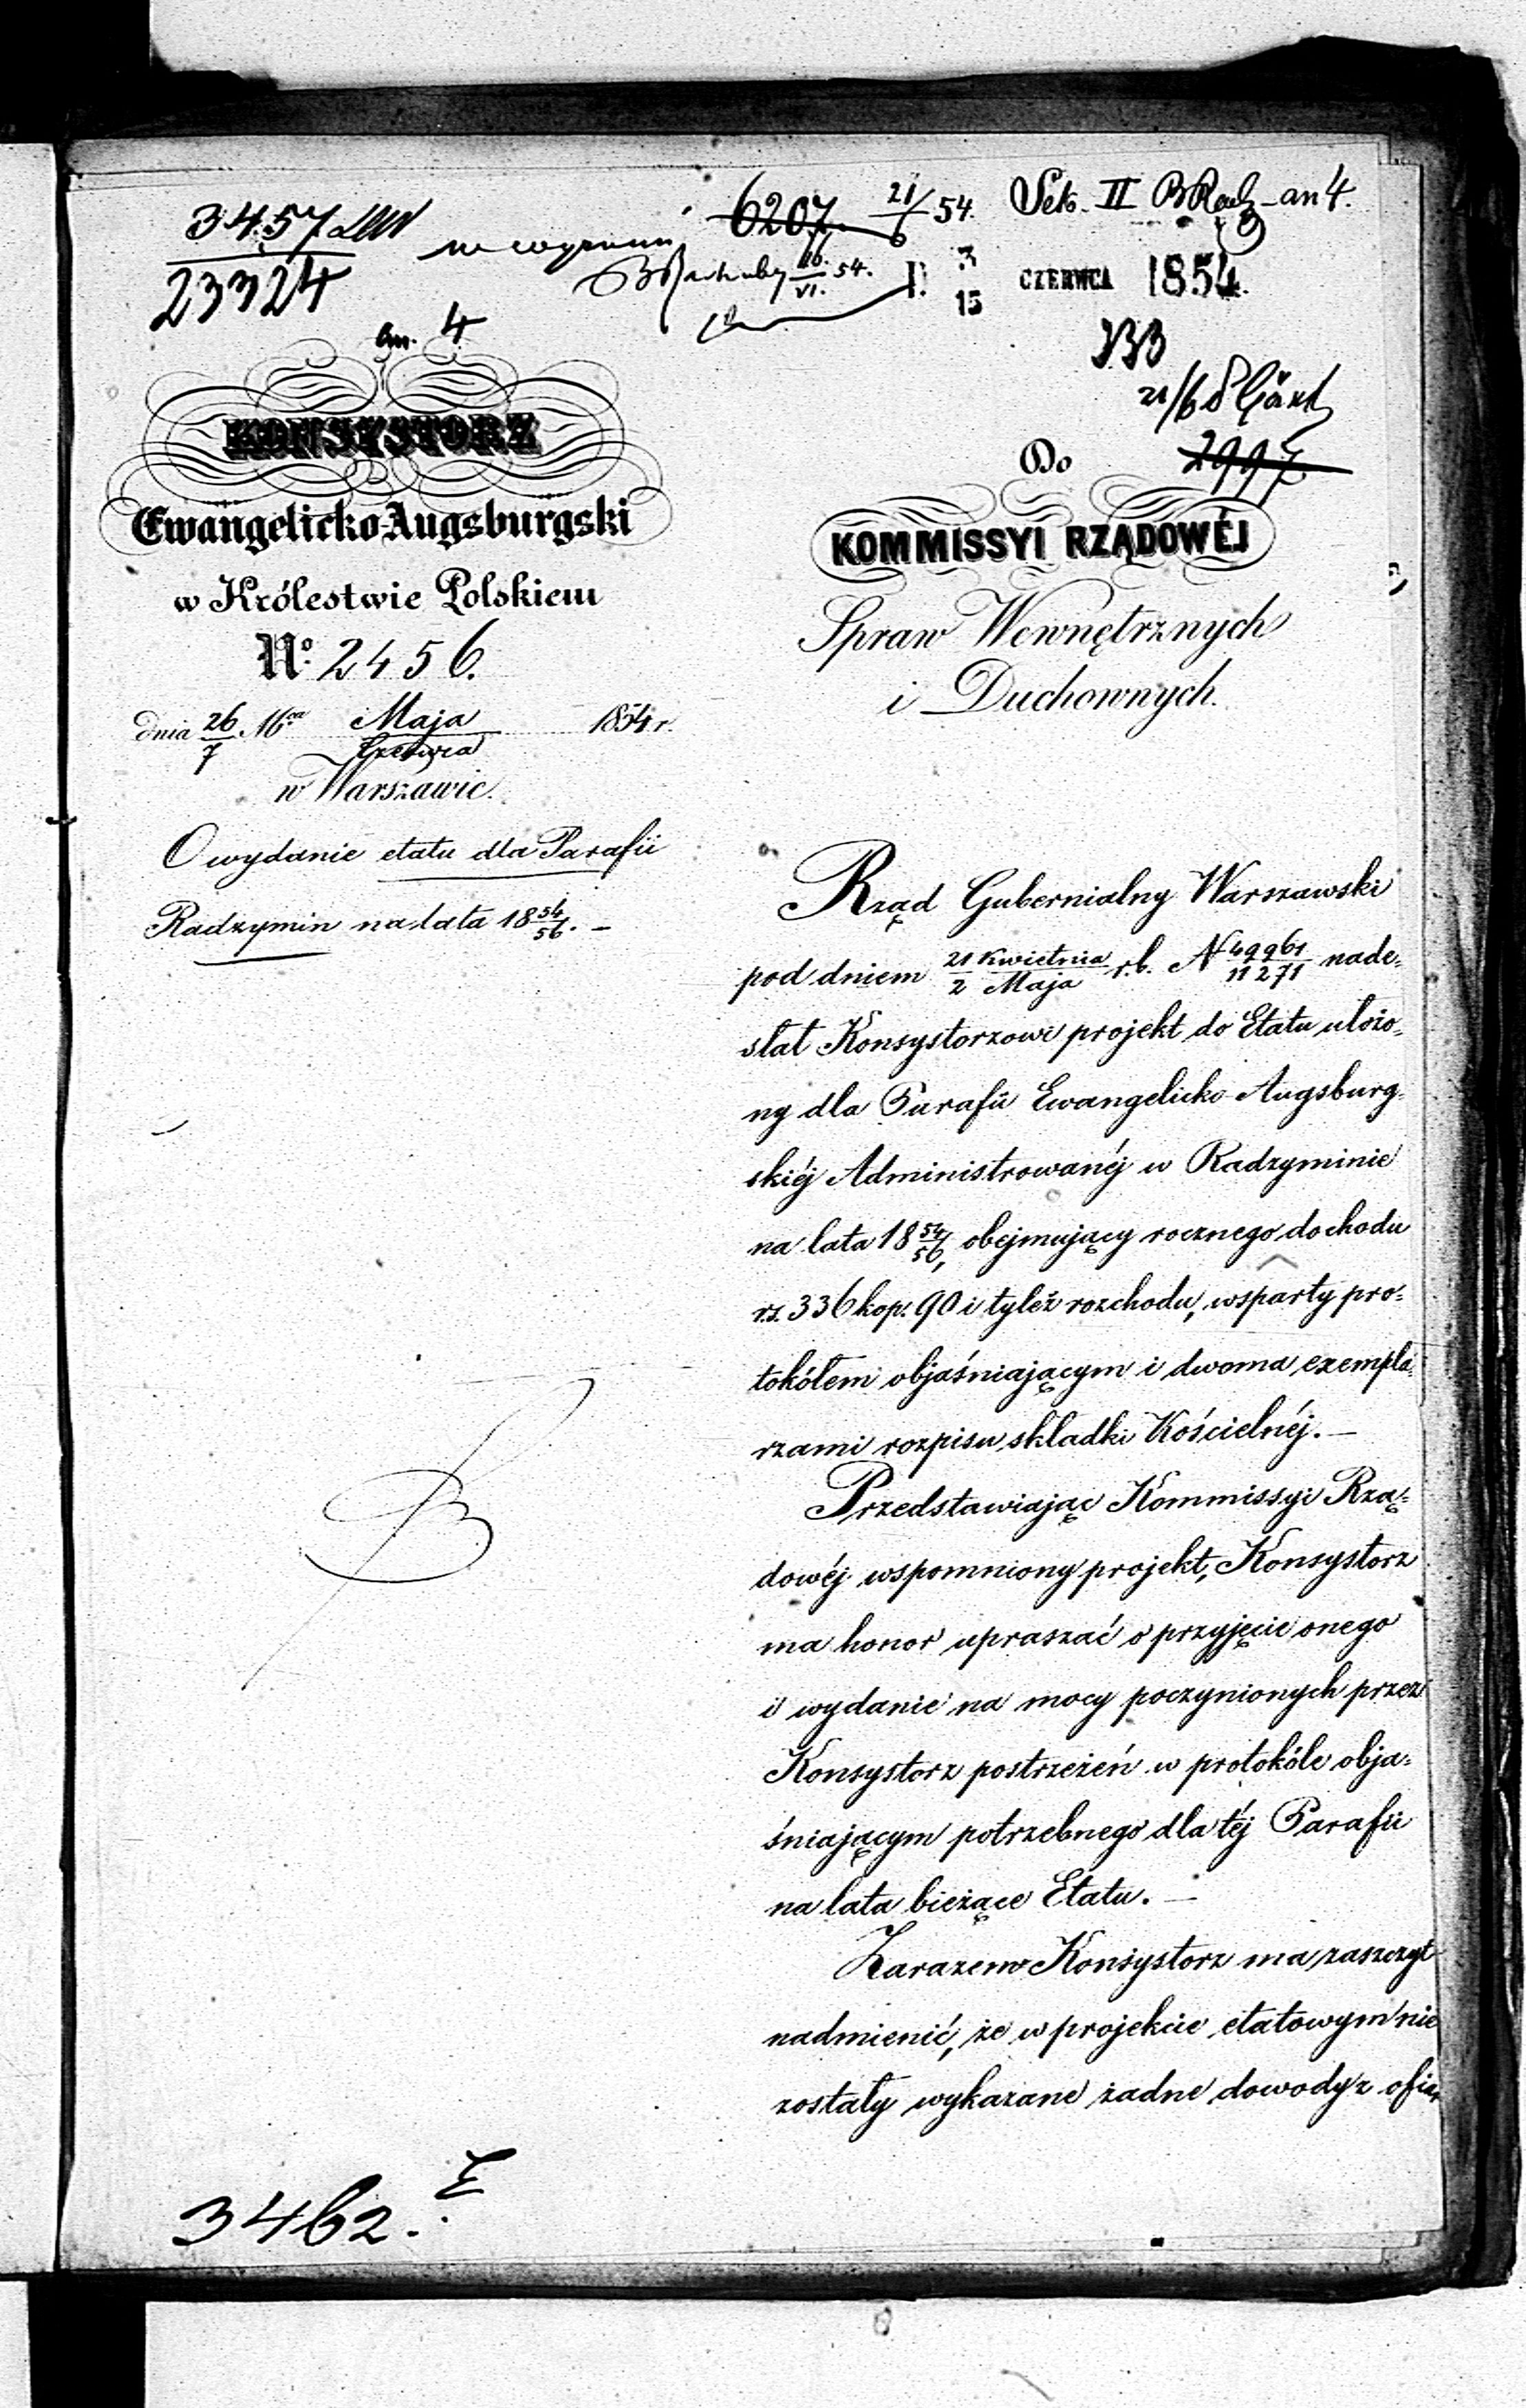 3457
23324
6207 21/6 54.
Sek. II
26/VI. 54.
3/15 CZERWCA 1854.
an. 4
21/6
Do
2997
KONSYSTORZ
Ewangelicko-Augsburgski
w Królestwie Polskiem
No. 2456.
dnia 26/7 Maja/Czerwca 1854 r.
w Warszawie.
O wydanie etatu dla Parafii
Radzymin na lata 18 54/56. –
KOMMISSYI RZĄDOWÉJ
Spraw Wewnętrznych
i Duchownych.
Rząd Gubernialny Warszawski
pod dniem 21 Kwietnia/2 Maja r.b. N 49961/11271 nade-
słał Konsystorzowi projekt do Etatu ułożo-
ny dla Parafii Ewangelicko-Augsburg-
skiéj Administrowanéj w Radzyminie
na lata 18 54/56, obejmujący rocznego dochodu
rs. 336 kop. 90 i tyleż rozchodu, wsparty pro-
tokółem objaśniającym i dwoma exempla-
rzami rozpisu składki Kościelnéj. –
Przedstawiając Kommissyi Rzą-
dowéj wspomniony projekt, Konsystorz
ma honor upraszać o przyjęcie onego
i wydanie na mocy poczynionych przez
Konsystorz postrzeżeń w protokóle obja-
śniającym potrzebnego dla téj Parafii
na lata bieżące Etatu. –
Zarazem Konsystorz ma zaszczyt
nadmienić, że w projekcie etatowym nie
zostały wykazane żadne dowody z ofiar
3462.